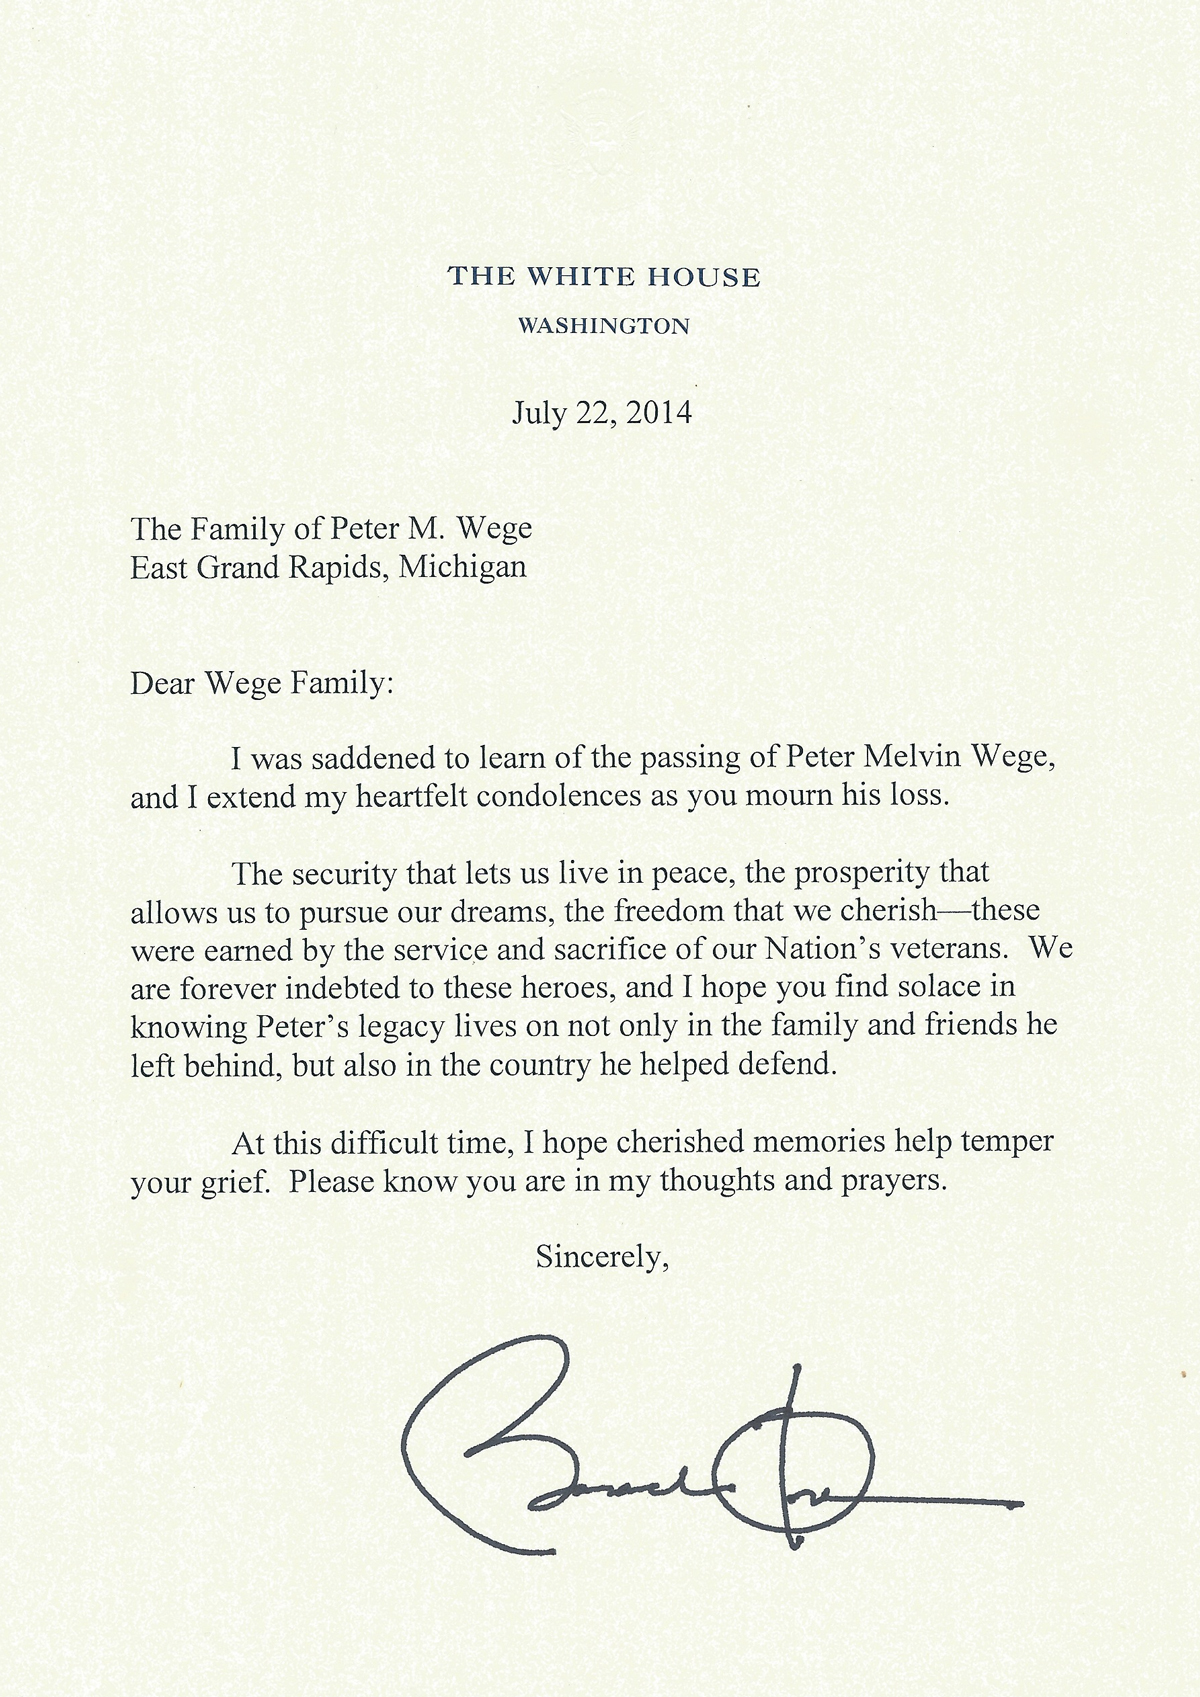 THE WHITE HOUSE
WASHINGTON
July 22, 2014
The Family of Peter M. Wege
East Grand Rapids, Michigan
Dear Wege Family:
I was saddened to learn of the passing of Peter Melvin Wege,
and I extend my heartfelt condolences as you mourn his loss.
The security that lets us live in peace, the prosperity that
allows us to pursue our dreams, the freedom that we cherish—these
were earned by the service and sacrifice of our Nation’s veterans.  We
are forever indebted to these heroes, and I hope you find solace in
knowing Peter’s legacy lives on not only in the family and friends he
left behind, but also in the country he helped defend.
At this difficult time, I hope cherished memories help temper
your grief.  Please know you are in my thoughts and prayers.
Sincerely,
Barack Obama